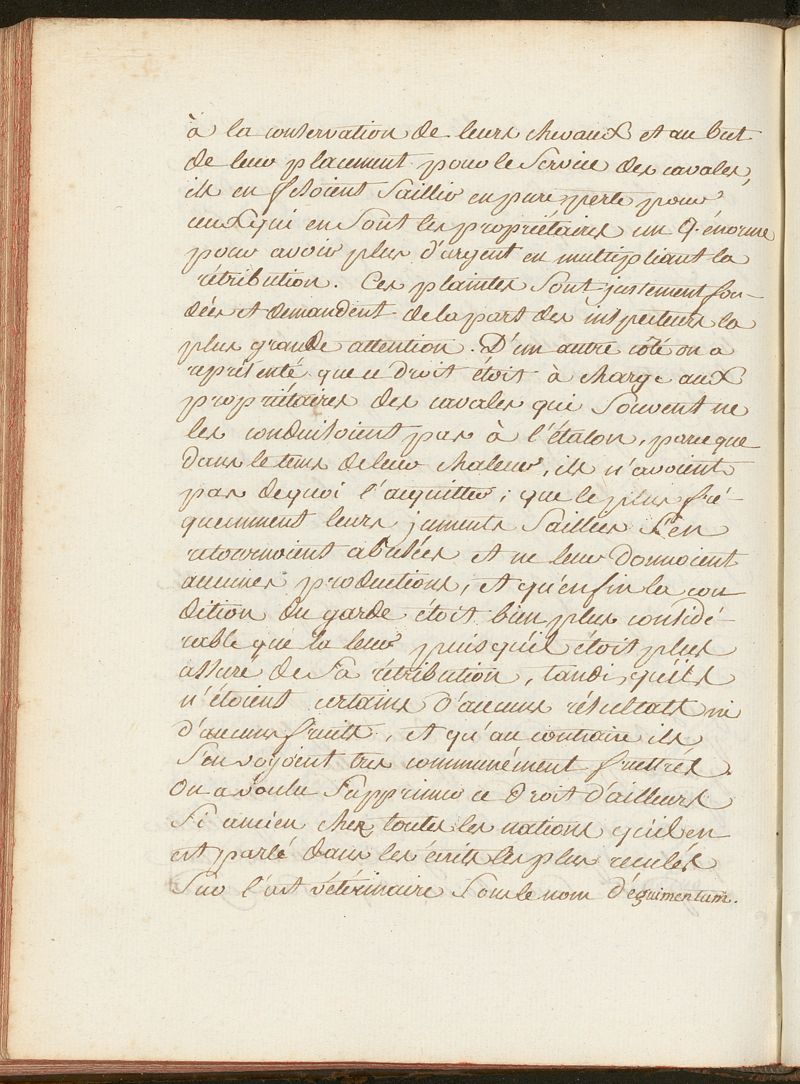 à la conservation de leurs chevaux et au but
de leur placement pour le service des cavales,
ils en fesoient saillir en pure perte pour
ceux qui en sont les propriétaires un Q. énorme
pour avoir plus d'argent en multipliant la
rétribution. Ces plaintes sont justement fon-
dées et demandent de la part des inspecteurs la
plus grande attention. D'un autre côté on a
représenté que ce droit étoit à charge aux
propriétaires des cavales qui souvent ne
les conduisoient pas à l'étalon, parce que
dans le tems de leur chaleur, ils n'avoient
pas de quoi l'acquitter; que le plus fré-
quemment leurs juments saillies s'en
retournoient abusées et ne leur donnoient
aucunes productions, et qu'enfin la con
dition du garde étoit bien plus considé-
rable que la leur puisqu'il étoit plus
assuré de sa rétribution, tandis qu'ils
n'étoient certains d'aucuns résultats ni
d'aucuns fruits, et qu'au contraire ils
s'en voyoient très communément frustrés.
On a voulu supprimer ce droit d'ailleurs
si ancien chez toutes les nations qu'il en
est parlé dans les écrits les plus reculés
sur l'art vétérinaire sous le nom d'équimentum.